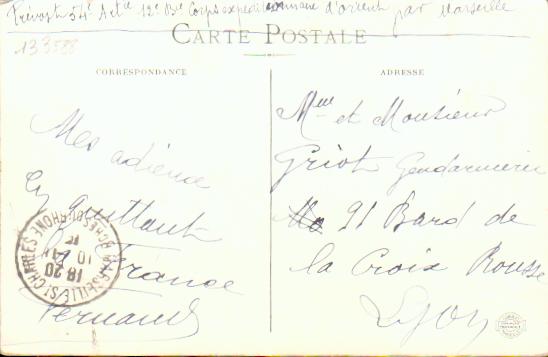 Prévost 54e Artie 12e Bie Corps expéditionnaire d'orient par Marseille
CARTE POSTALE
133588
CORRESPONDANCE
Mes adieux
En quittant
la France
Fernand
ADRESSE
Mme et Monsieur
Griot Gendarmerie
91 Bard de
la Croix Rousse
Lyon
MARSEILLE St CHARLES
18 20
10
BCHES DU RHONE